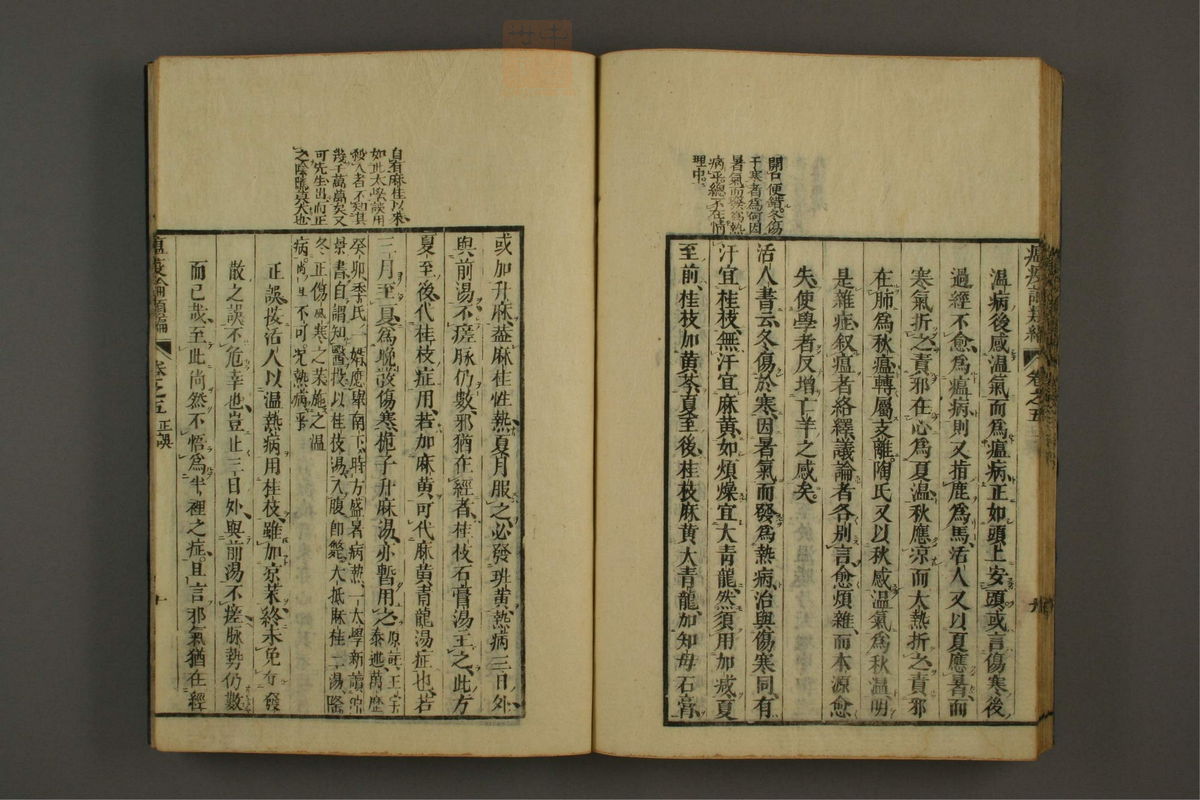 開口便錯冬傷
于寒者為何因
暑氣而發為熱
病乎總不在情
理中
溫病後感溫氣而爲瘟病正如頭上安頭或言傷寒後
過經不愈爲瘟病則又指鹿爲馬活人又以夏應暑而
寒氣折之責邪在心爲夏溫秋應涼而大熱折之責邪
在肺爲秋瘟轉屬支離陶氏又以秋感溫氣爲秋溫明
是雜症叙瘟者絡繹議論者各別言愈煩雜而本源愈
失使學者反增亡羊之感矣
活人書云冬傷於寒因暑氣而發爲熱病治與傷寒同有
汗宜桂枝無汗宜麻黄如煩燥宜大青龍然須用加减夏
至前桂枝加黄芩夏至後桂枝麻黄大青龍加知母石膏
卷之五
自有麻桂以來
如此太陽誤用
殺人者不知其
幾千萬萬矣又
可先生出而正
之陰隲莫大也
或加升麻葢麻桂性熱夏月服之必發斑黄熱病三日外
與前湯不瘥脉仍數邪猶在經者桂枝石膏湯主之此方
夏至後代桂枝症用若加麻黄可代麻黄青龍湯症也若
三月至夏爲晚發傷寒梔子升麻湯亦暫用之
正誤按活人以溫熱病用桂枝雖加凉藥終未免有發
散之誤不危幸也豈止三日外與前湯不瘥脉勢仍數
而已哉至此尚然不悟爲半裡之症且言邪氣猶在經
瘟疫論類編
卷之五
正誤
十